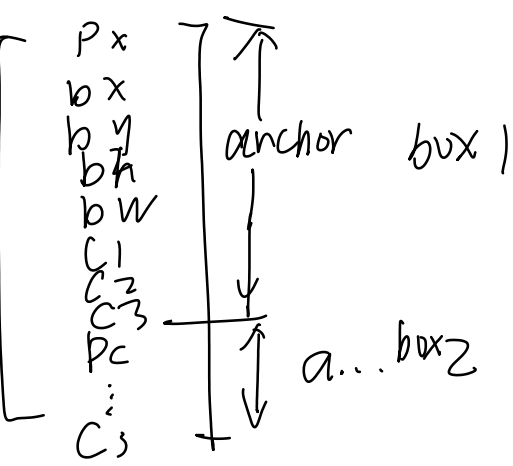 Px
bx
by
bh
bw
C1
C2
C3
Pc
⋮
C3
anchor box 1
a... box2